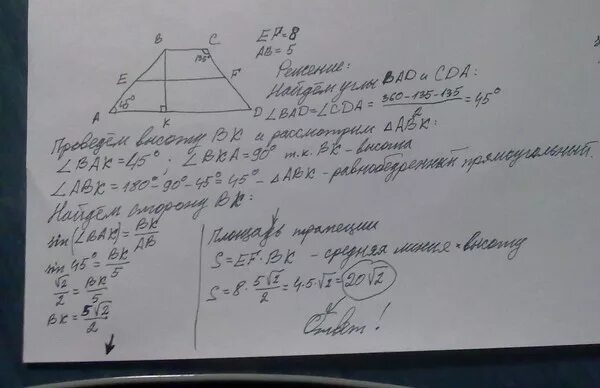 B C
135°
E F
A 45° K D
EF=8
AB=5
Решение:
Найдём углы BAD и CDA:
∠BAD=∠CDA= (360-135-135)/2 =45°
Проведём высоту BK и рассмотрим △ABK:
∠BAK=45° · ∠BKA=90° т.к. BK-высота
∠ABK=180°-90-45=45° - △ABK-равнобедренный прямоугольный.
Найдём сторону BK:
sin(∠BAK)= BK/AB
sin 45°= BK/5
√2/2 = BK/5
BK= 5√2/2
Площадь трапеции
S=EF·BK - средняя линия × высоту
S=8· 5√2/2 =4·5·√2=20√2
Ответ!